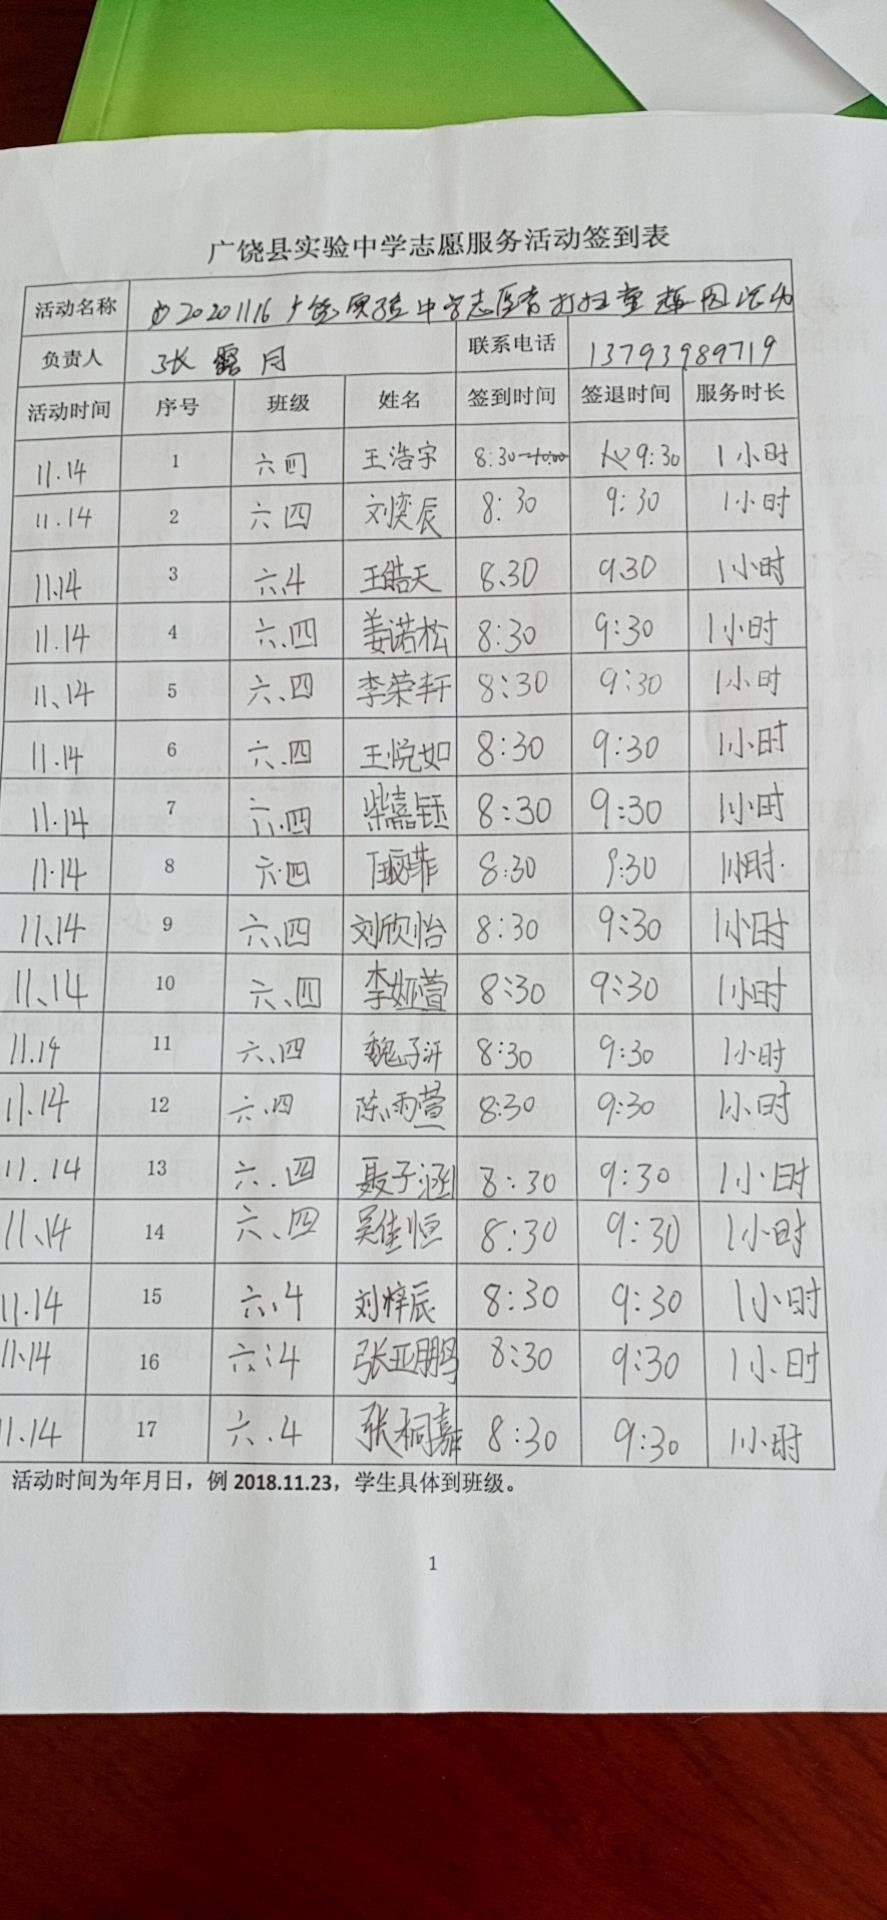 广饶县实验中学志愿服务活动签到表
活动名称 20201116广饶实验中学志愿者打扫童趣园活动
负责人 张露月 联系电话 13793989719
活动时间 序号 班级 姓名 签到时间 签退时间 服务时长
11.14 1 六四 王浩宇 8:30 9:30 1小时
11.14 2 六.四 刘奕辰 8:30 9:30 1小时
11.14 3 六.4 王皓天 8.30 9.30 1小时
11.14 4 六.四 姜诺松 8:30 9:30 1小时
11、14 5 六.四 李荣轩 8:30 9:30 1小时
11.14 6 六.四 王悦如 8:30 9:30 1小时
11.14 7 六.四 柴嘉钰 8:30 9:30 1小时
11.14 8 六.四 8:30 9:30 1小时.
11、14 9 六、四 刘欣怡 8:30 9:30 1小时
11、14 10 六、四 李娅萱 8:30 9:30 1小时
11.14 11 六、四 魏子汧 8:30 9:30 1小时
11.14 12 六.四 陈雨萱 8:30 9:30 1小时
11.14 13 六.四 聂子涵 8:30 9:30 1小时
11、14 14 六、四 吴佳恒 8:30 9:30 1小时
11.14 15 六、4 刘梓辰 8:30 9:30 1小时
11.14 16 六:4 张亚鹏 8:30 9:30 1小时
11.14 17 六.4 张桐嘉 8:30 9:30 1小时
活动时间为年月日，例 2018.11.23，学生具体到班级。
1